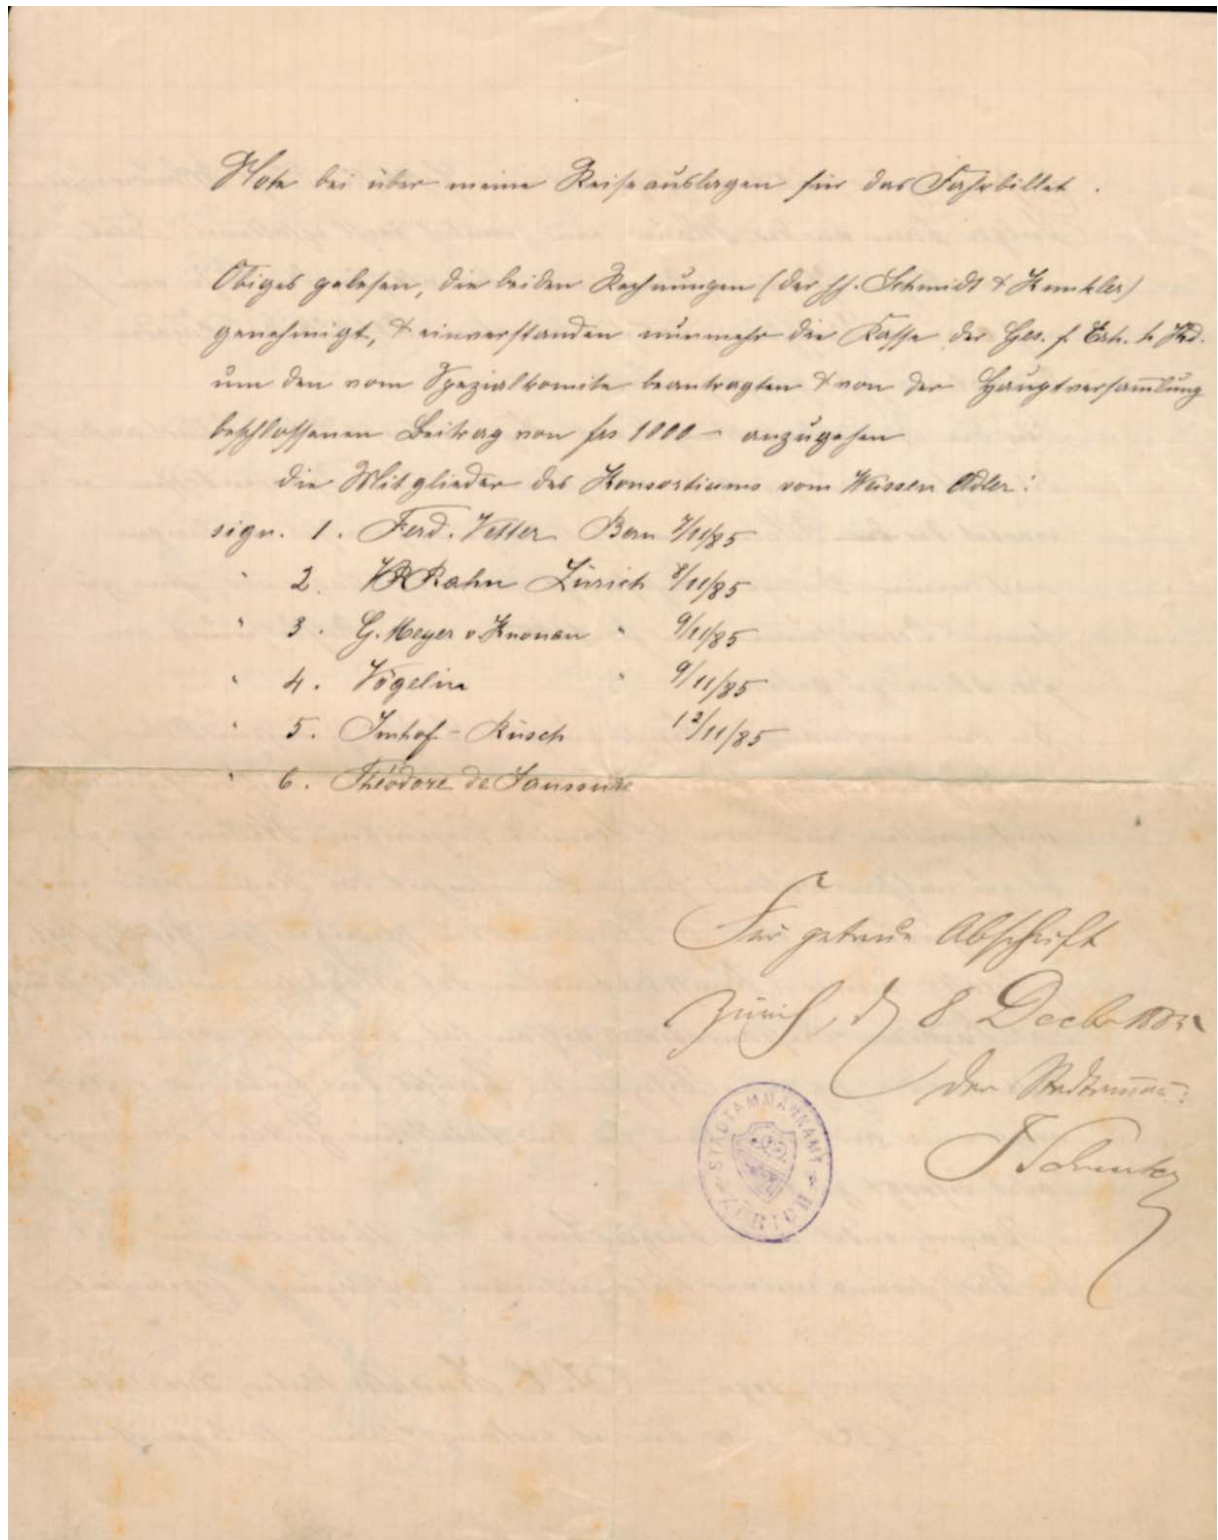 Note bei über meine Reiseauslagen für das Fahrbillet.
Obiges gelesen, die beiden Rechnungen (der HH. Schmidt & Kunkler)
genehmigt, & einverstanden nunmehr die Kasse der Ges. f. Erh. h. Kd.
um den vom Spezialkomite beantragten & von der Hauptversam̅lung
beschlossenen Beitrag von frs 1000 – anzugehen
die Mitglieder des Konsortiums vom Weissen Adler:
sign. 1. Ferd. Vetter Bern 7/11/85
" 2. Rahn Zürich 8/11/85
" 3. G. Meyer v. Knonau " 9/11/85
" 4. Vögelin " 9/11/85
" 5. Imhof-Rüsch 12/11/85
" 6. Théodore de Saussure
Für getreue Abschrift
Zürich, d 8 Decbr 1885
Der Stadtam̅an̅:
STADTAMMANNAMT
ZÜRICH